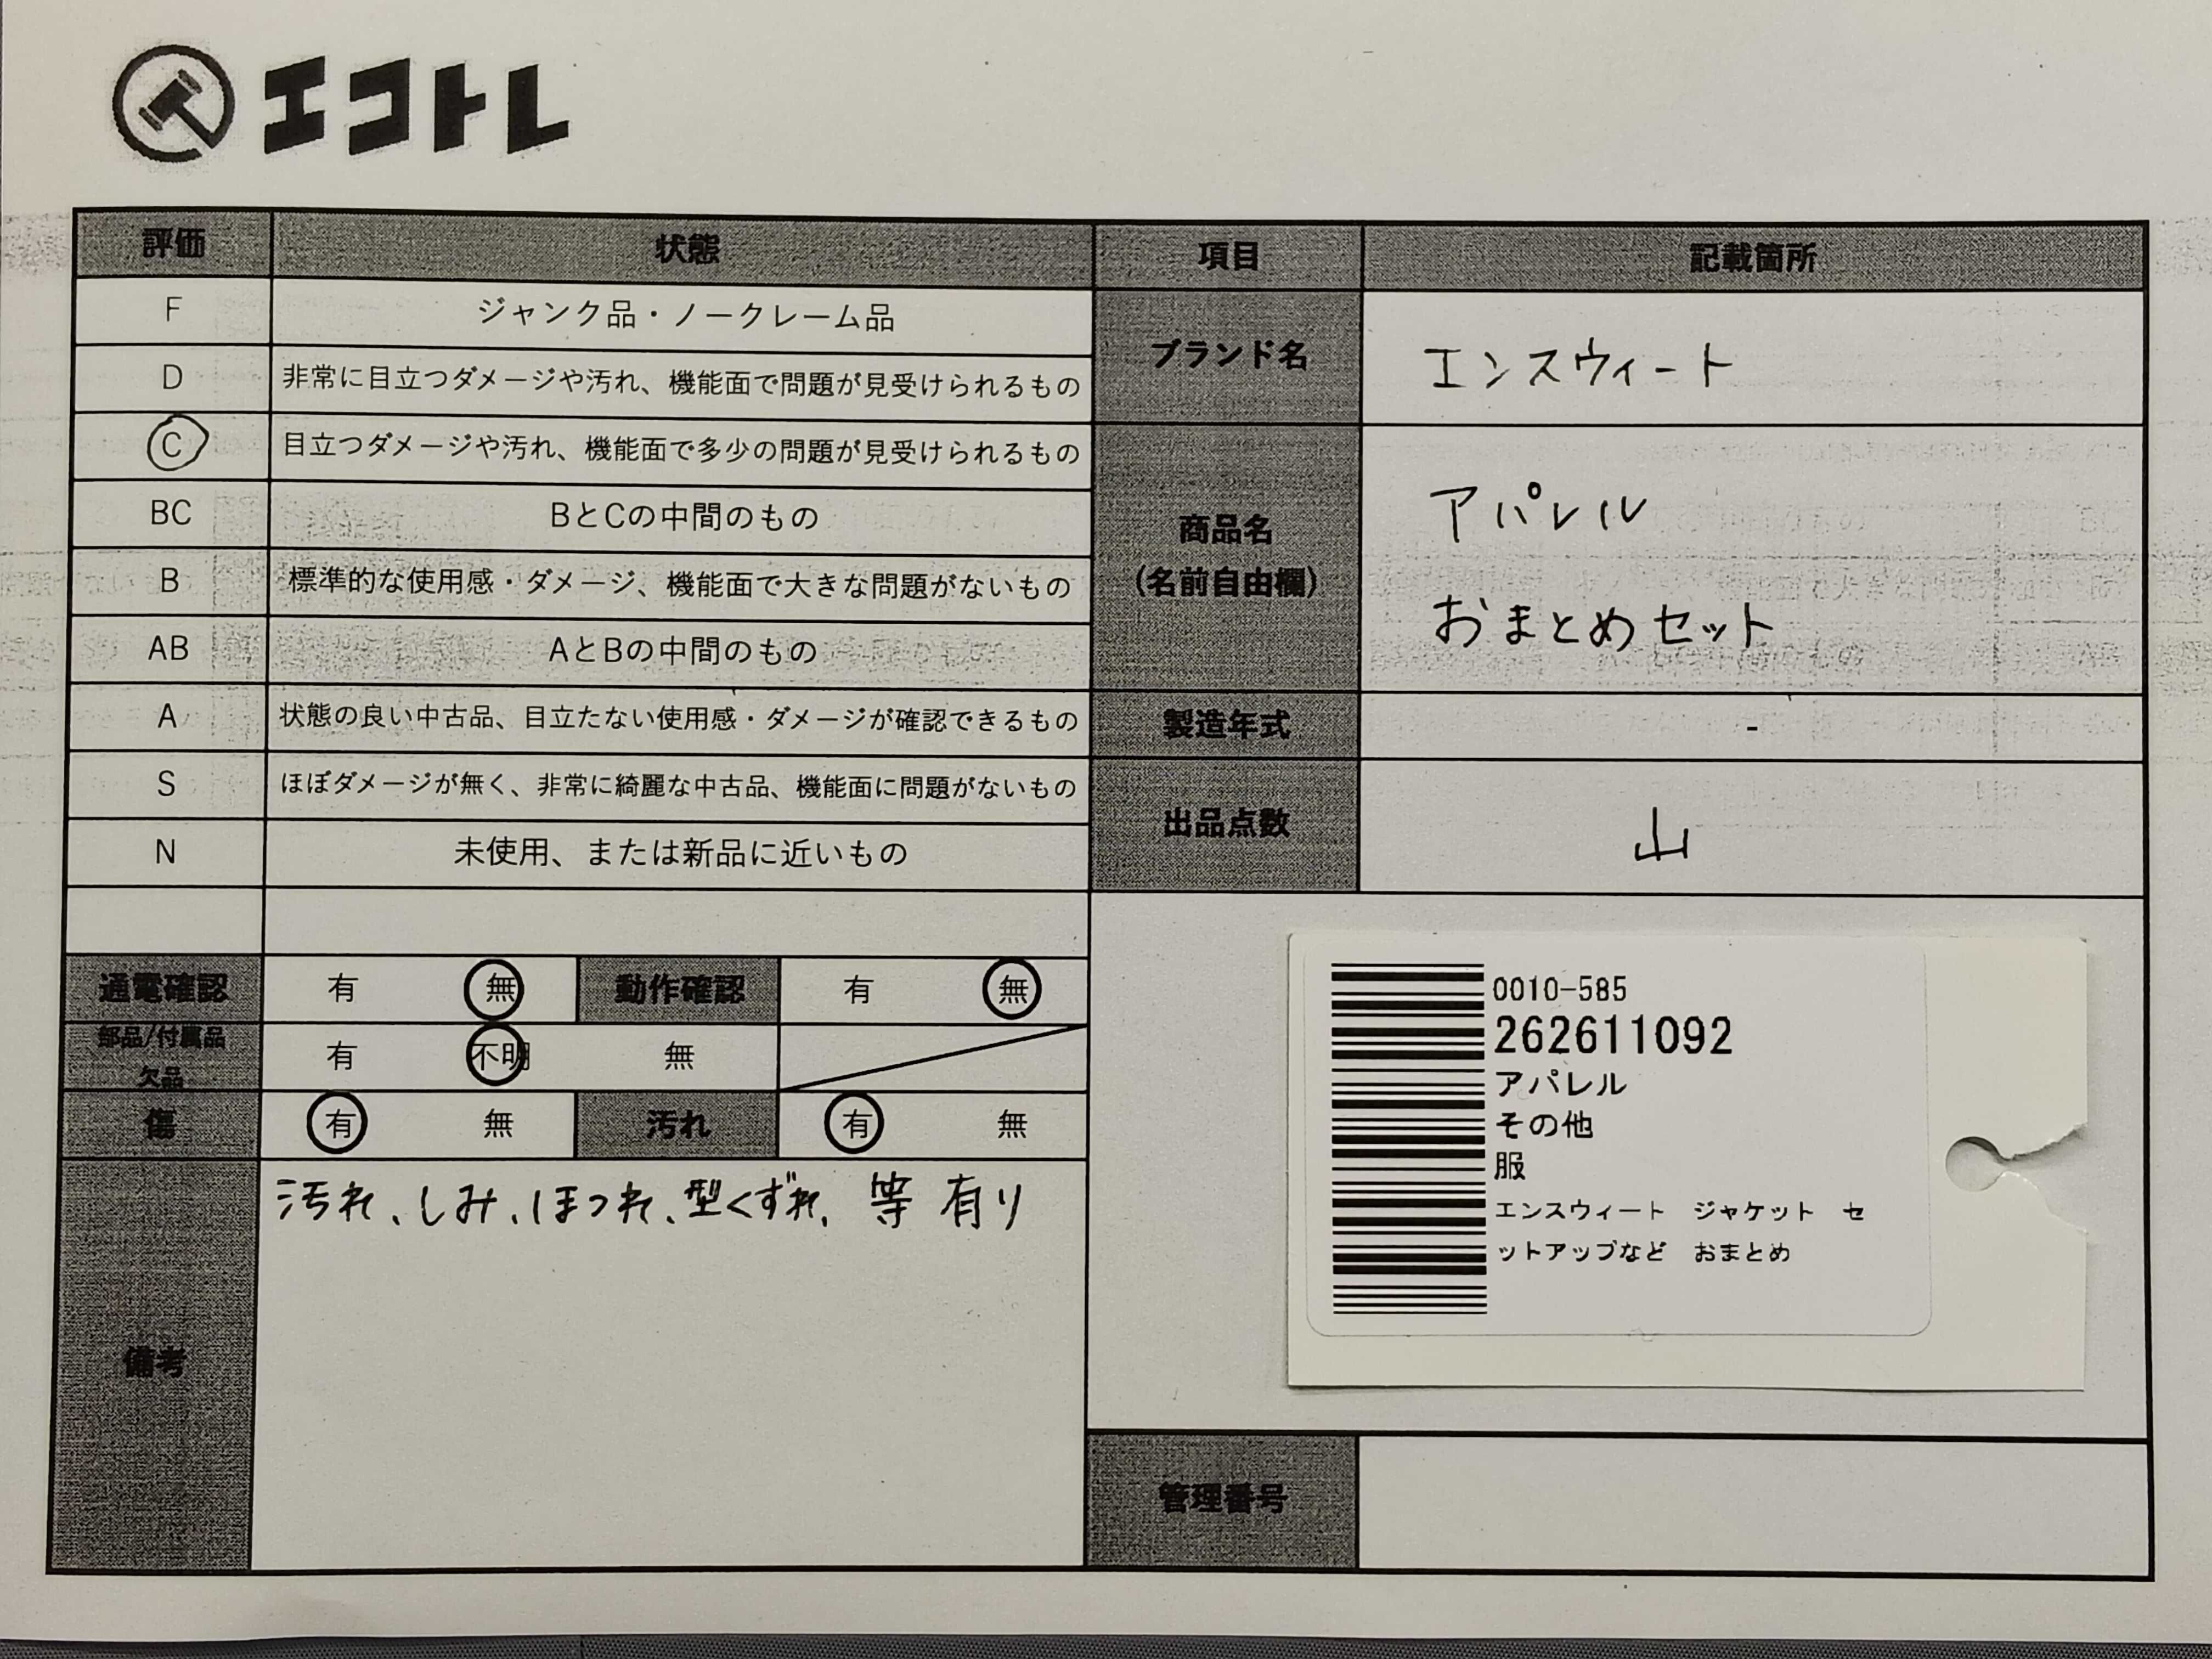 エコトレ
評価 状態
F ジャンク品・ノークレーム品
D 非常に目立つダメージや汚れ、機能面で問題が見受けられるもの
C 目立つダメージや汚れ、機能面で多少の問題が見受けられるもの
BC BとCの中間のもの
B 標準的な使用感・ダメージ、機能面で大きな問題がないもの
AB AとBの中間のもの
A 状態の良い中古品、目立たない使用感・ダメージが確認できるもの
S ほぼダメージが無く、非常に綺麗な中古品、機能面に問題がないもの
N 未使用、または新品に近いもの
通電確認 有 無 動作確認 有 無
部品/付属品
欠品 有 不明 無
傷 有 無 汚れ 有 無
備考 汚れ、しみ、ほつれ、型くずれ、等 有り
項目 記載箇所
ブランド名 エンスウィート
商品名
(名前自由欄)
アパレル
おまとめセット
製造年式 -
出品点数 山
0010-585
262611092
アパレル
その他
服
エンスウィート ジャケット セ
ットアップなど おまとめ
管理番号